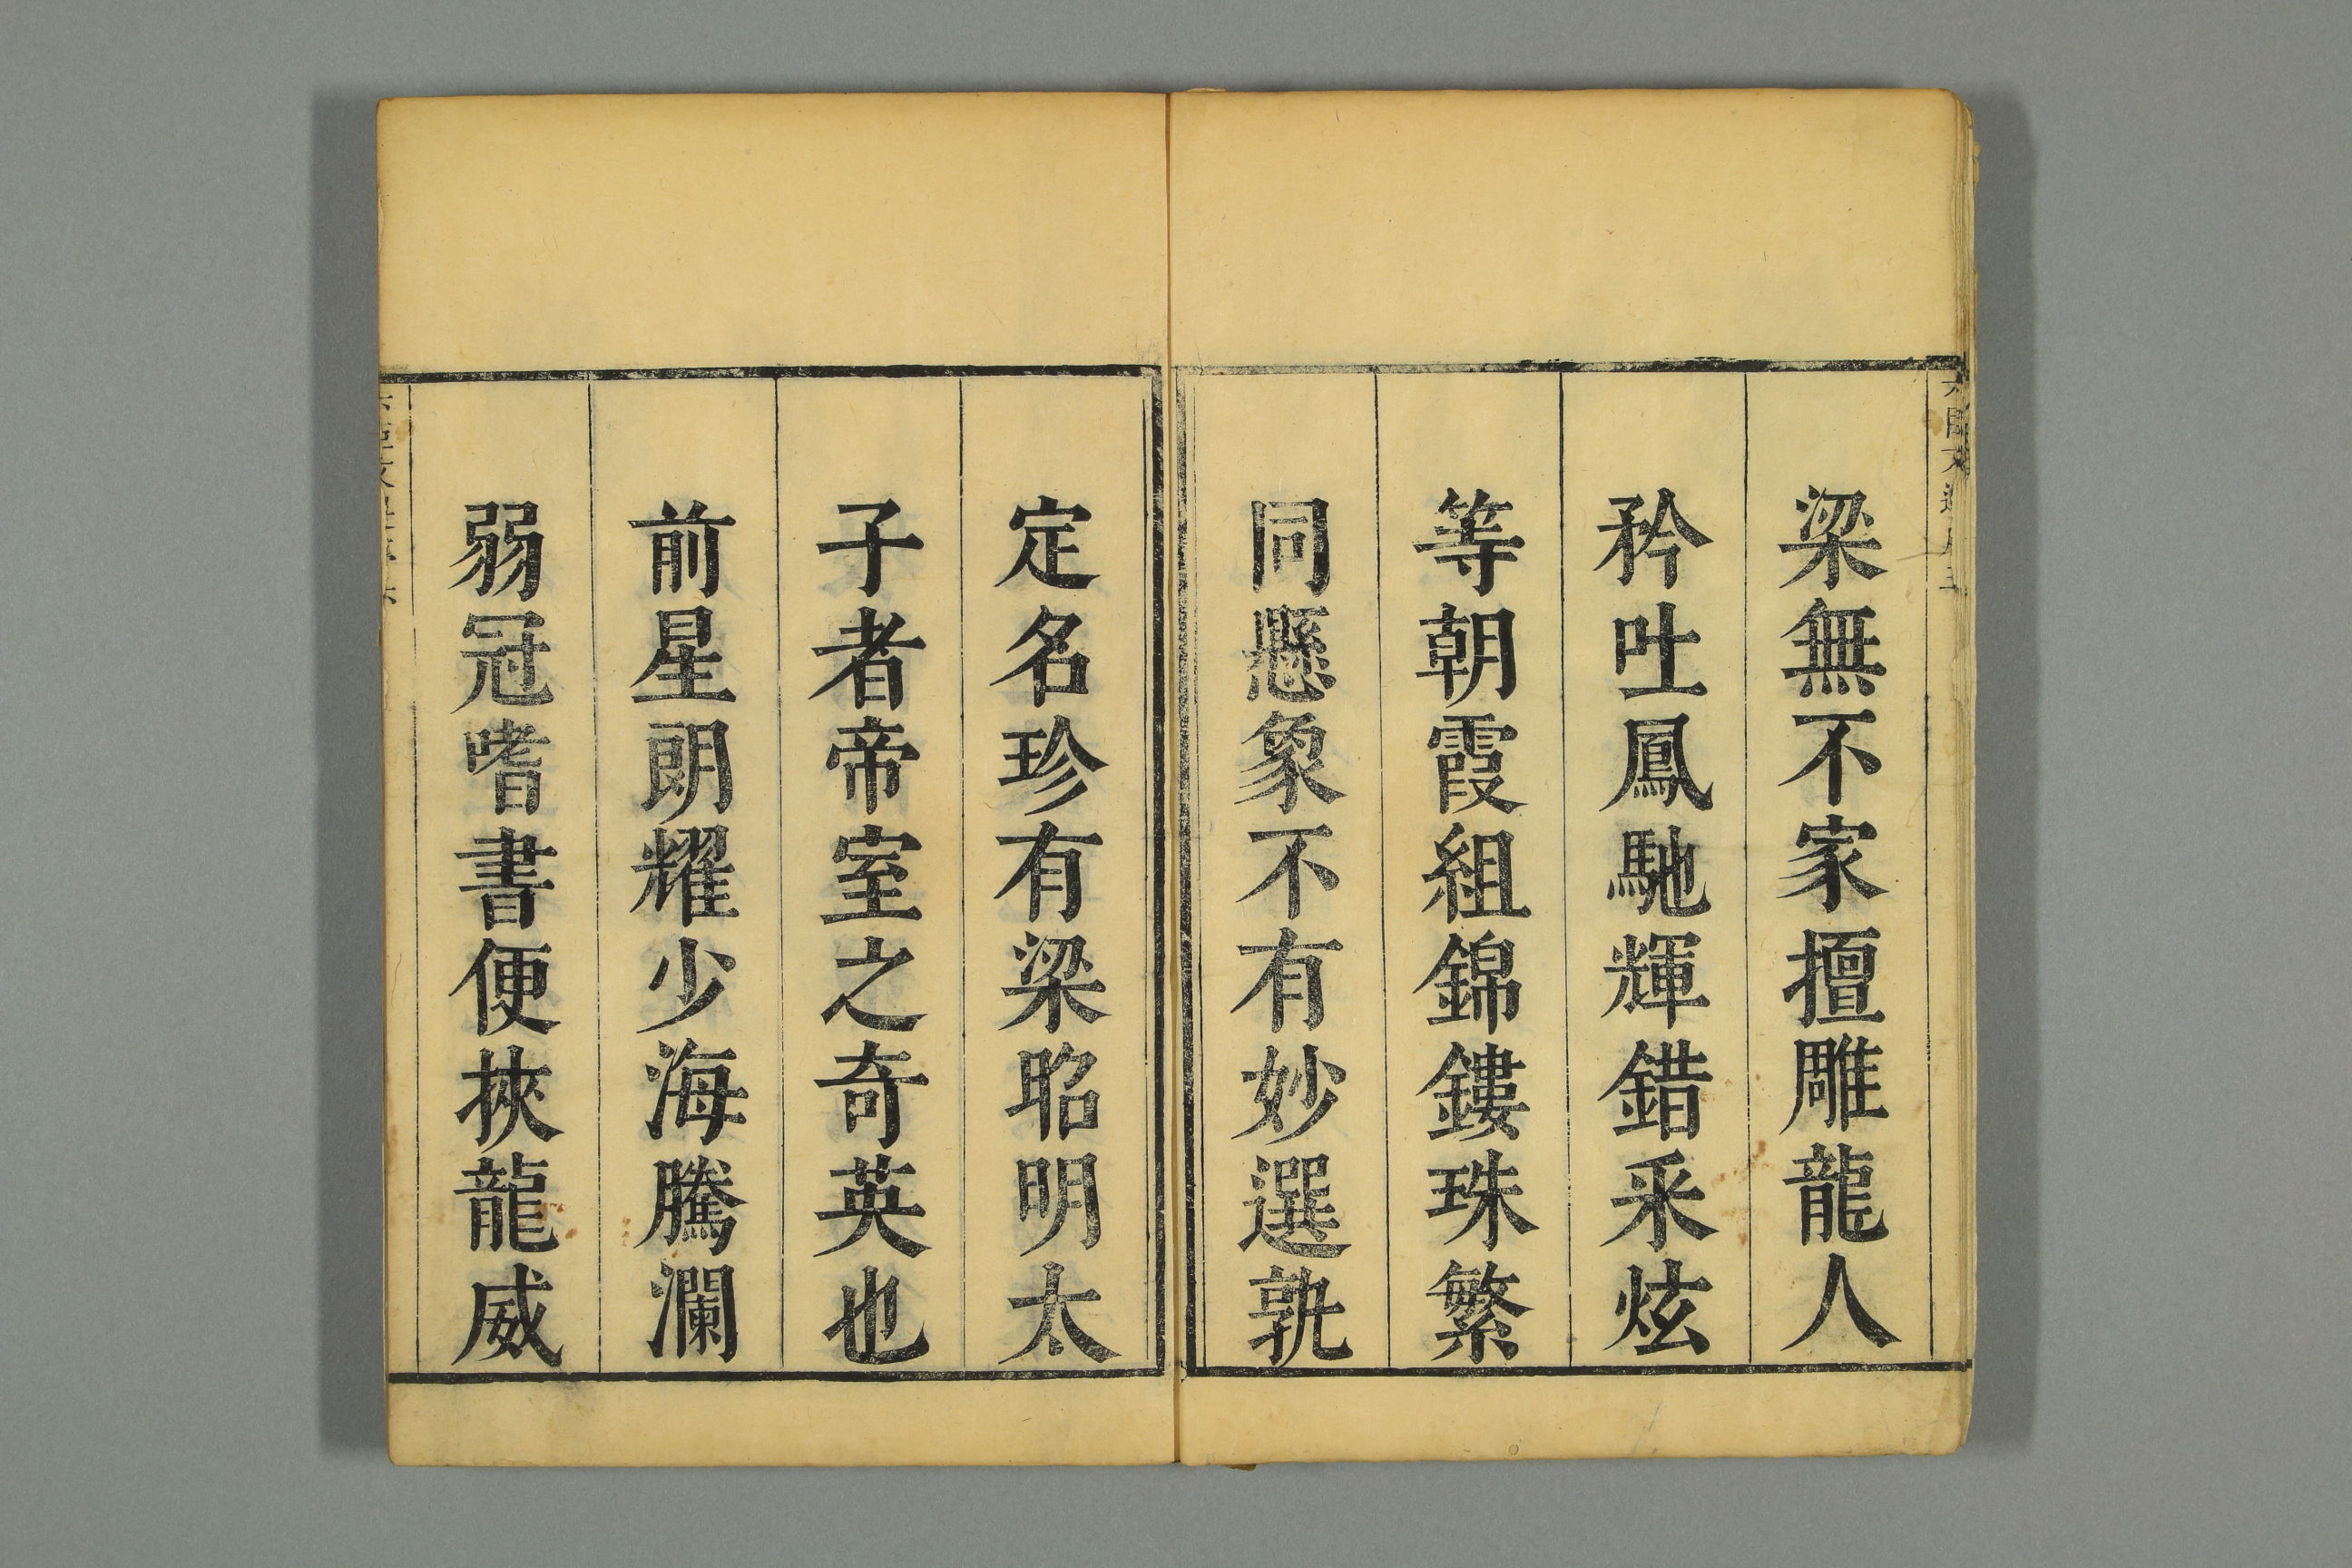 梁無不家擅雕龍人
矜吐鳳馳輝錯采炫
等朝霞組錦鏤珠繁
同懸象不有妙選孰
定名珍有梁昭明太
子者帝室之奇英也
前星朗耀少海騰瀾
弱冠嗜書便挾龍威